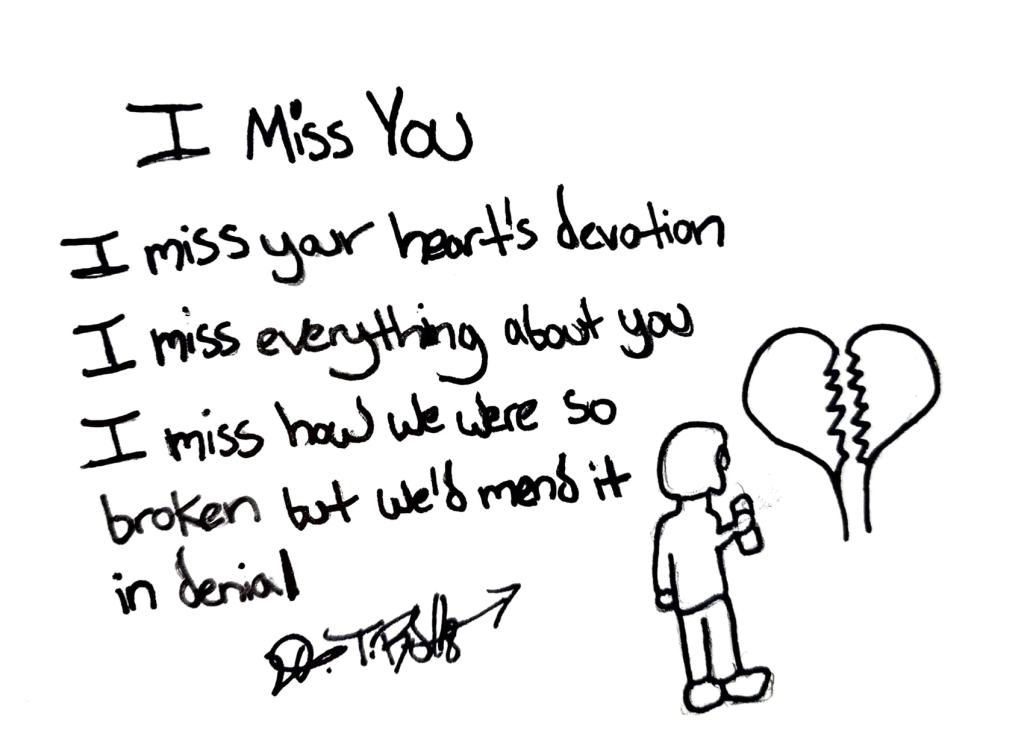 I Miss You
I miss your heart's devotion
I miss everything about you
I miss how we were so
broken but we'd mend it
in denial